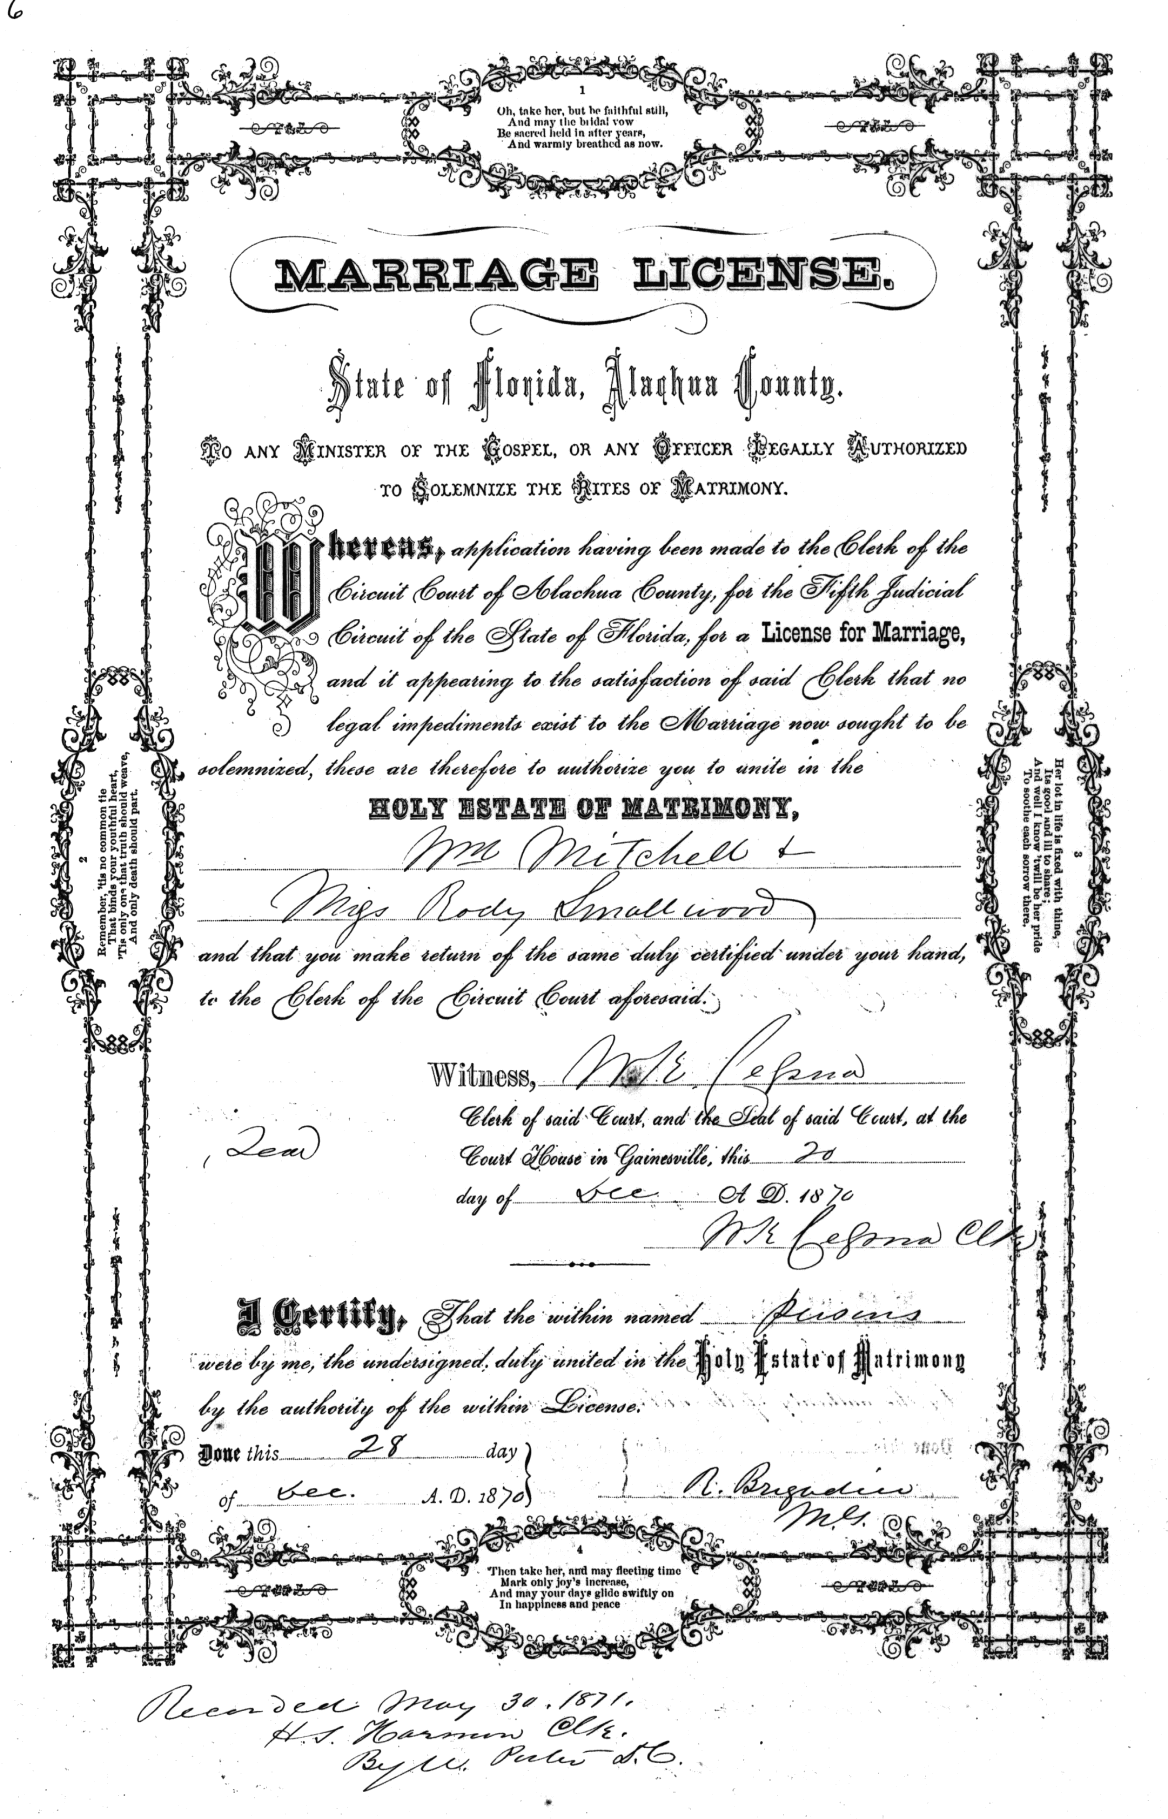 6
1
Oh, take her, but be faithful still,
And may the bridal vow
Be sacred held in after years,
And warmly breathed as now.
MARRIAGE LICENSE.
State of Florida, Alachua County.
TO ANY MINISTER OF THE GOSPEL, OR ANY OFFICER LEGALLY AUTHORIZED
TO SOLEMNIZE THE RITES OF MATRIMONY.
Whereas, application having been made to the Clerk of the
Circuit Court of Alachua County, for the Fifth Judicial
Circuit of the State of Florida, for a License for Marriage,
and it appearing to the satisfaction of said Clerk that no
legal impediments exist to the Marriage now sought to be
solemnized, these are therefore to authorize you to unite in the
HOLY ESTATE OF MATRIMONY,
Wm Mitchell &
Miss Rody Smallwood
and that you make return of the same duly certified under your hand,
to the Clerk of the Circuit Court aforesaid.
2
Remember, 'tis no common tie
That binds your youthful heart,
'Tis only one that truth should weave,
And only death should part.
3
Her lot in life is fixed with thine,
Its good and ill to share;
And well I know 'twill be her pride
To soothe each sorrow there.
Witness, W K Cessna
Clerk of said Court, and the Seal of said Court, at the
Seal
Court House in Gainesville, this 20
day of Dec A. D. 1870
W K Cessna Clk
I Certify, That the within named persons
were by me, the undersigned, duly united in the Holy Estate of Matrimony
by the authority of the within License.
Done this 28 day
of Dec. A. D. 1870
R. Brigadier
M.G.
4
Then take her, and may fleeting time
Mark only joy's increase,
And may your days glide swiftly on
In happiness and peace
Recorded May 30. 1871.
H. S. Harmon Clk.
By W. Porter D.C.